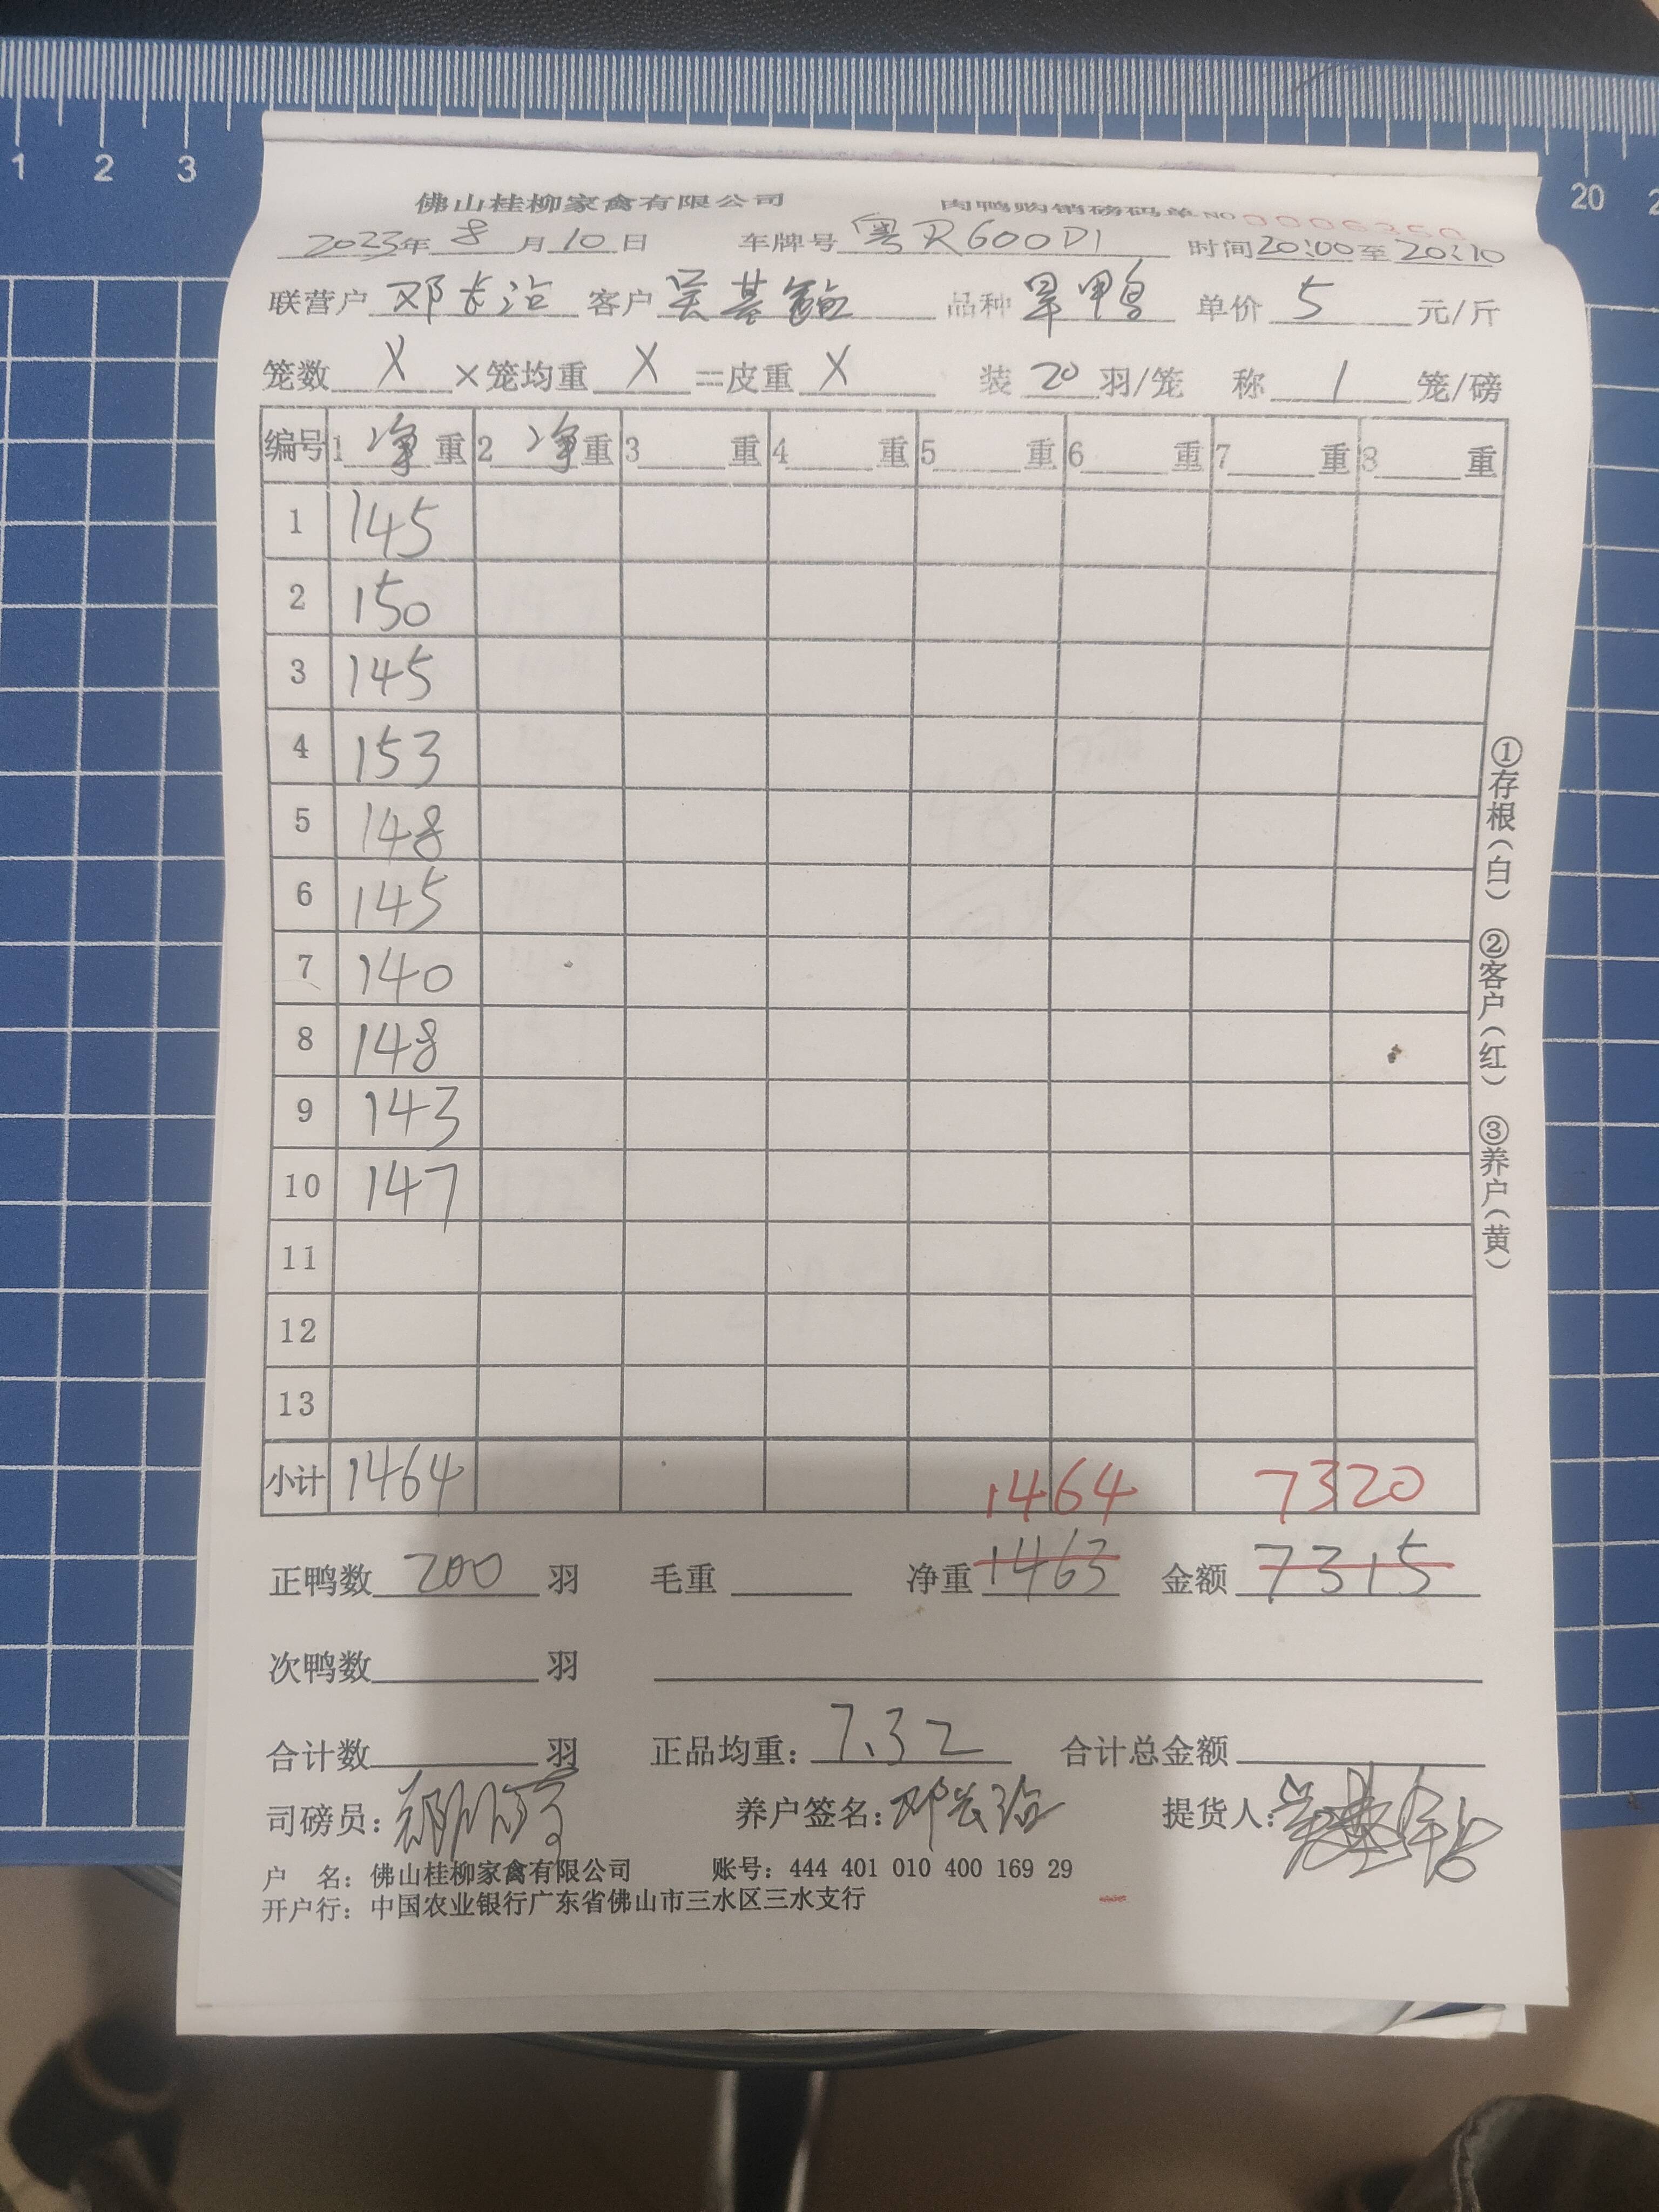 1 2 3 20 2
佛山桂柳家禽有限公司 肉鸭购销磅码单 NO 0006350
2023年 8 月 10 日 车牌号 粤R600D1 时间 20:00 至 20:10
联营户 邓长治 客户 吴基 品种 旱鸭 单价 5 元/斤
笼数 X ×笼均重 X =皮重 X 装 20 羽/笼 称 1 笼/磅
编号 1 净 重 2 净 重 3 重 4 重 5 重 6 重 7 重 8 重
1 145
2 150
3 145
4 153
5 148
6 145
7 140
8 148
9 143
10 147
11
12
13
小计 1464 1464 7320
正鸭数 200 羽 毛重 净重 1463 金额 7315
次鸭数 羽
合计数 羽 正品均重: 7.32 合计总金额
司磅员: 养户签名: 邓长治 提货人:
户 名: 佛山桂柳家禽有限公司 账号: 444 401 010 400 169 29
开户行: 中国农业银行广东省佛山市三水区三水支行
①存根(白) ②客户(红) ③养户(黄)